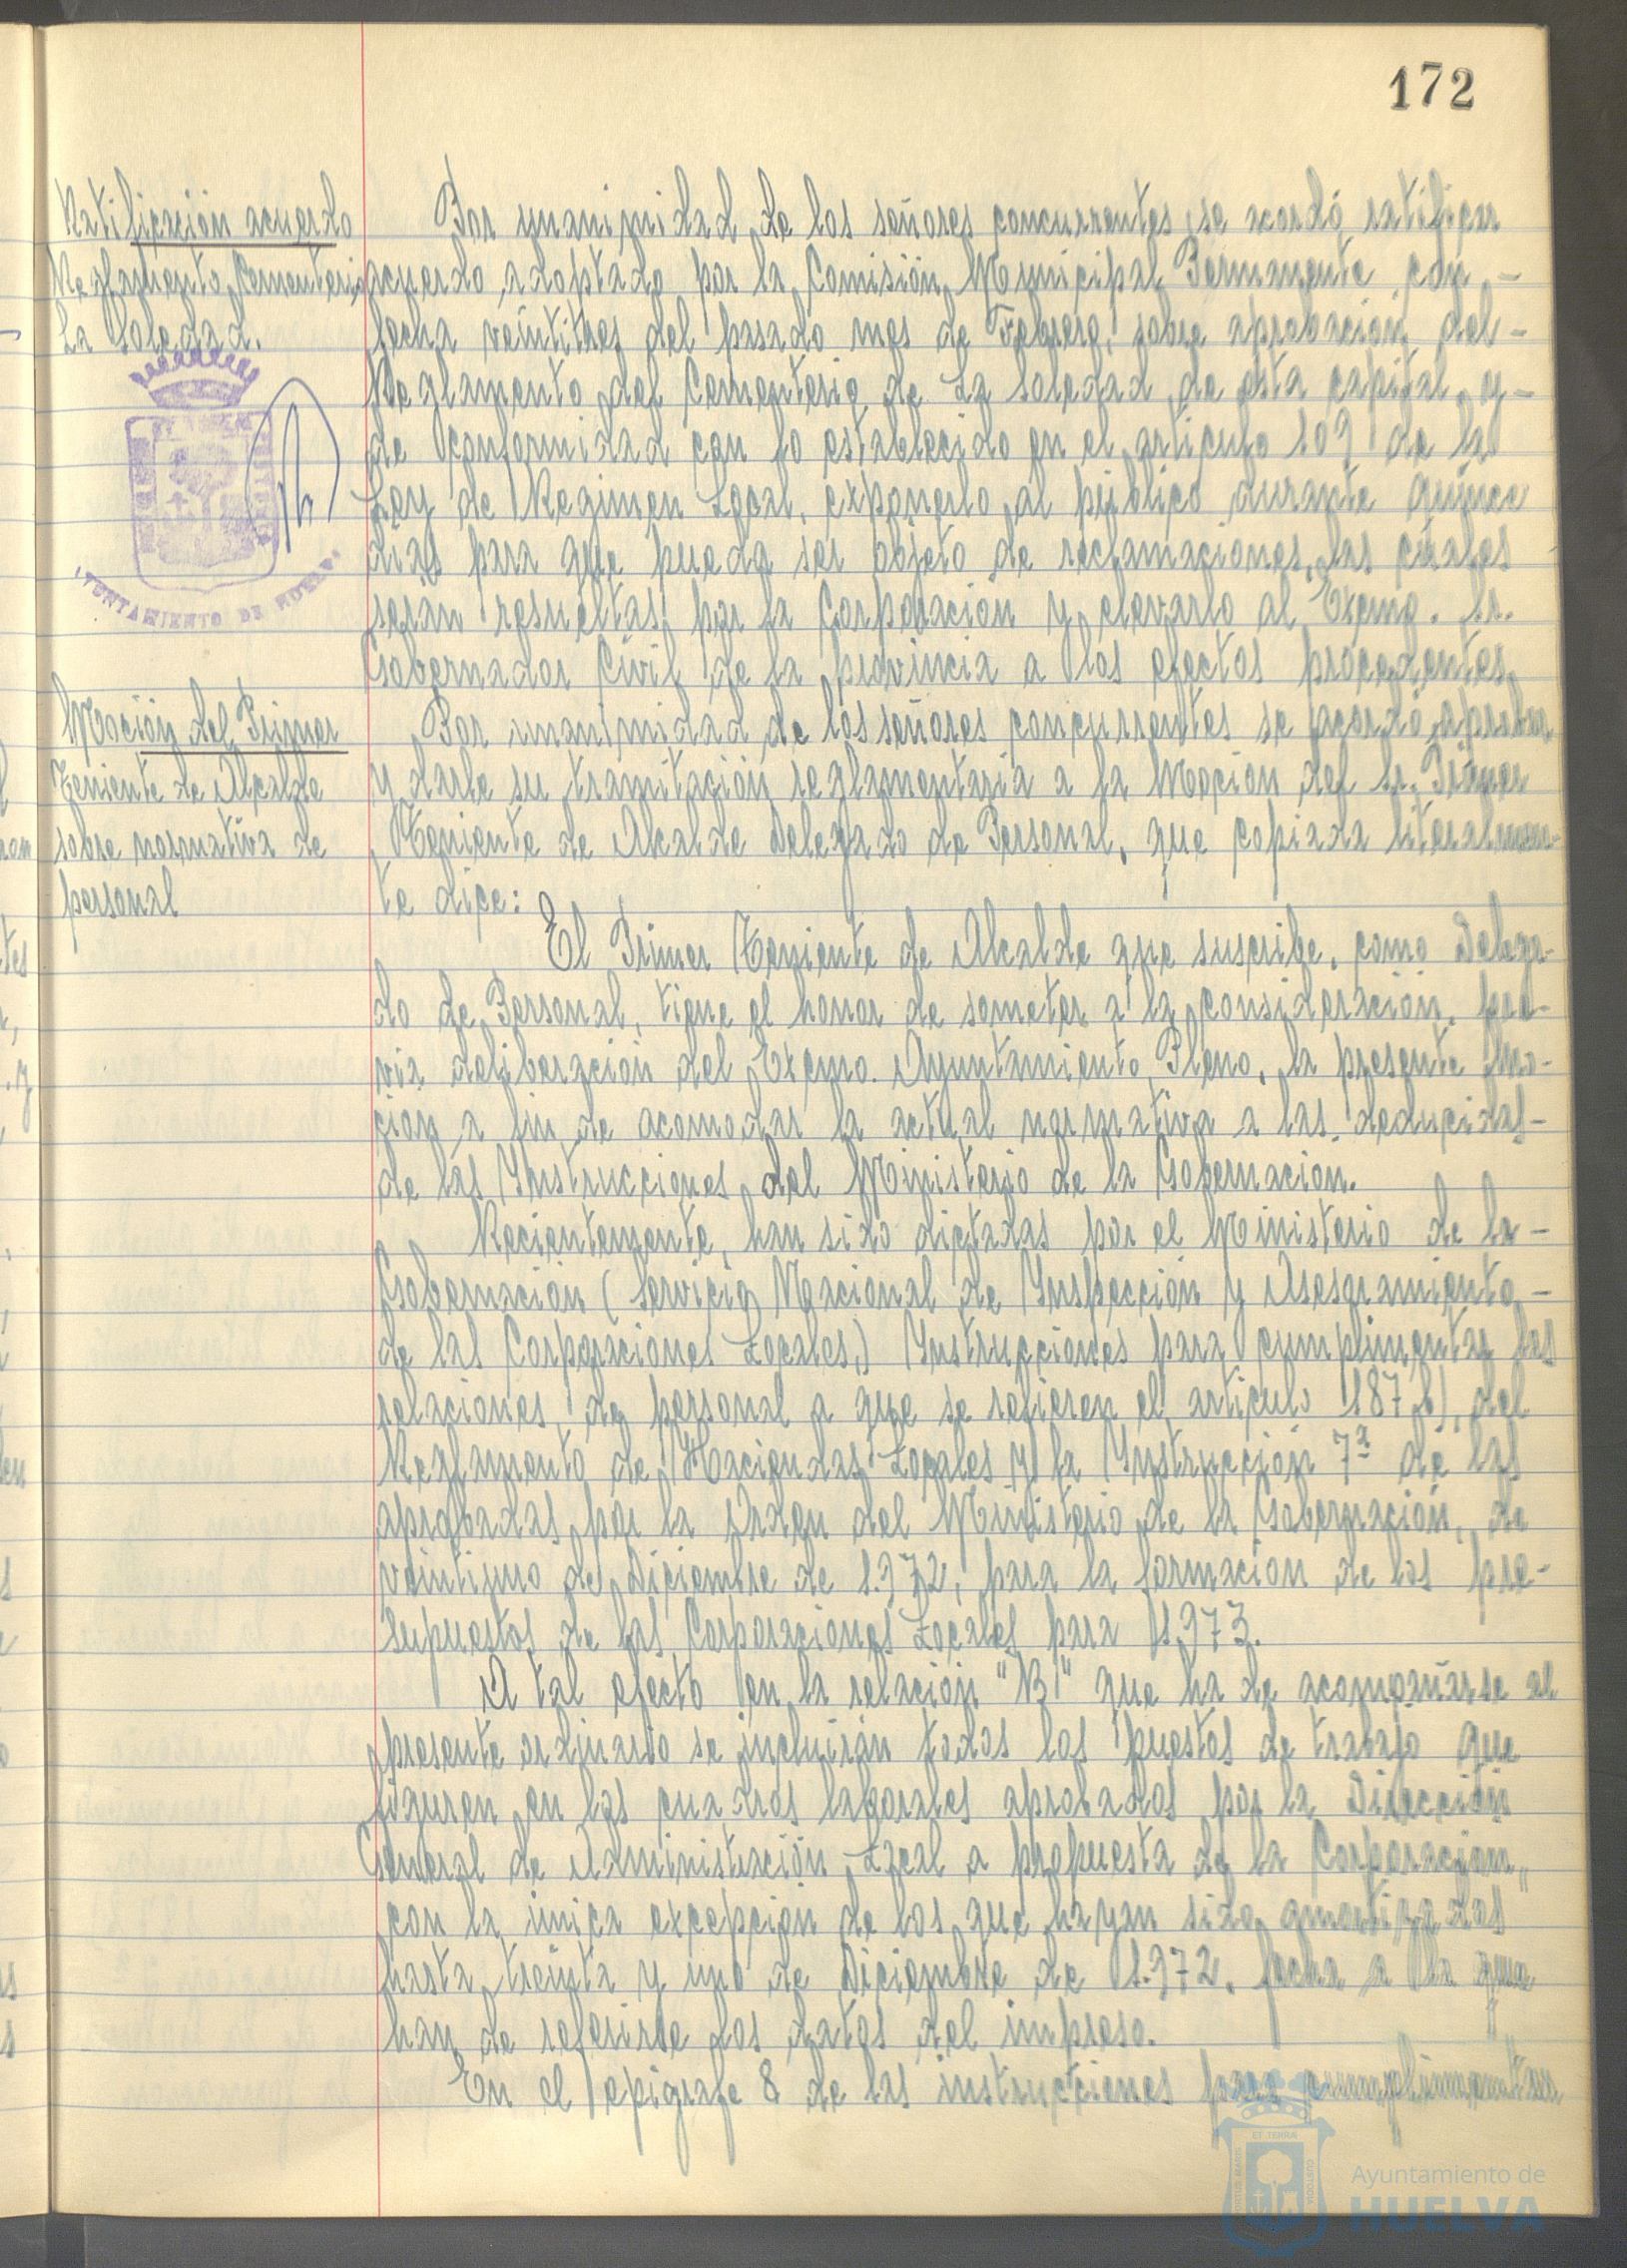 172
Ratificación acuerdo
Reglamento Cementerio
La Soledad.
Por unanimidad de los señores concurrentes, se acordó ratificar
acuerdo adoptado por la Comisión Municipal Permanente con -
fecha veintitres del pasado mes de Febrero, sobre aprobación del -
Reglamento del Cementerio de La Soledad de esta capital y -
de conformidad con lo establecido en el artículo 109 de la
Ley de Régimen Local, exponerlo al público durante quince
dias para que pueda ser objeto de reclamaciones, las cuales
serán resueltas por la Corporación y elevarlo al Excmo. Sr.
Gobernador Civil de la provincia a los efectos procedentes.
AYUNTAMIENTO DE HUELVA
Moción del Primer
Teniente de Alcalde
sobre normativa de
personal
Por unanimidad de los señores concurrentes se acordó aprobar
y darle su tramitación reglamentaria a la Moción del Sr. Primer
Teniente de Alcalde Delegado de Personal, que copiada literalmen-
te dice:
El Primer Teniente de Alcalde que suscribe, como Delega-
do de Personal, tiene el honor de someter a la consideración, pre-
via deliberación del Excmo. Ayuntamiento Pleno, la presente Mo-
ción a fin de acomodar la actual normativa a las deducidas -
de las Instrucciones del Ministerio de la Gobernación.
Recientemente, han sido dictadas por el Ministerio de la -
Gobernación (Servicio Nacional de Inspección y Asesoramiento -
de las Corporaciones Locales,) Instrucciones para cumplimentar las
relaciones de personal a que se refieren el artículo 187 b), del
Reglamento de Haciendas Locales y la Instrucción 7ª de las
aprobadas por la Orden del Ministerio de la Gobernación, de
veintiuno de Diciembre de 1.972, para la formación de los pre-
supuestos de las Corporaciones Locales para 1.973.
A tal efecto en la relación "B1" que ha de acompañarse al
presente ordinario se incluirán todos los puestos de trabajo que
figuren en los cuadros laborales aprobados por la Dirección
General de Administración Local a propuesta de la Corporación,
con la única excepción de los que hayan sido amortizados
hasta treinta y uno de Diciembre de 1.972, fecha a la que
han de referirse los datos del impreso.
En el epígrafe 8 de las instrucciones para cumplimentar
Ayuntamiento de
HUELVA